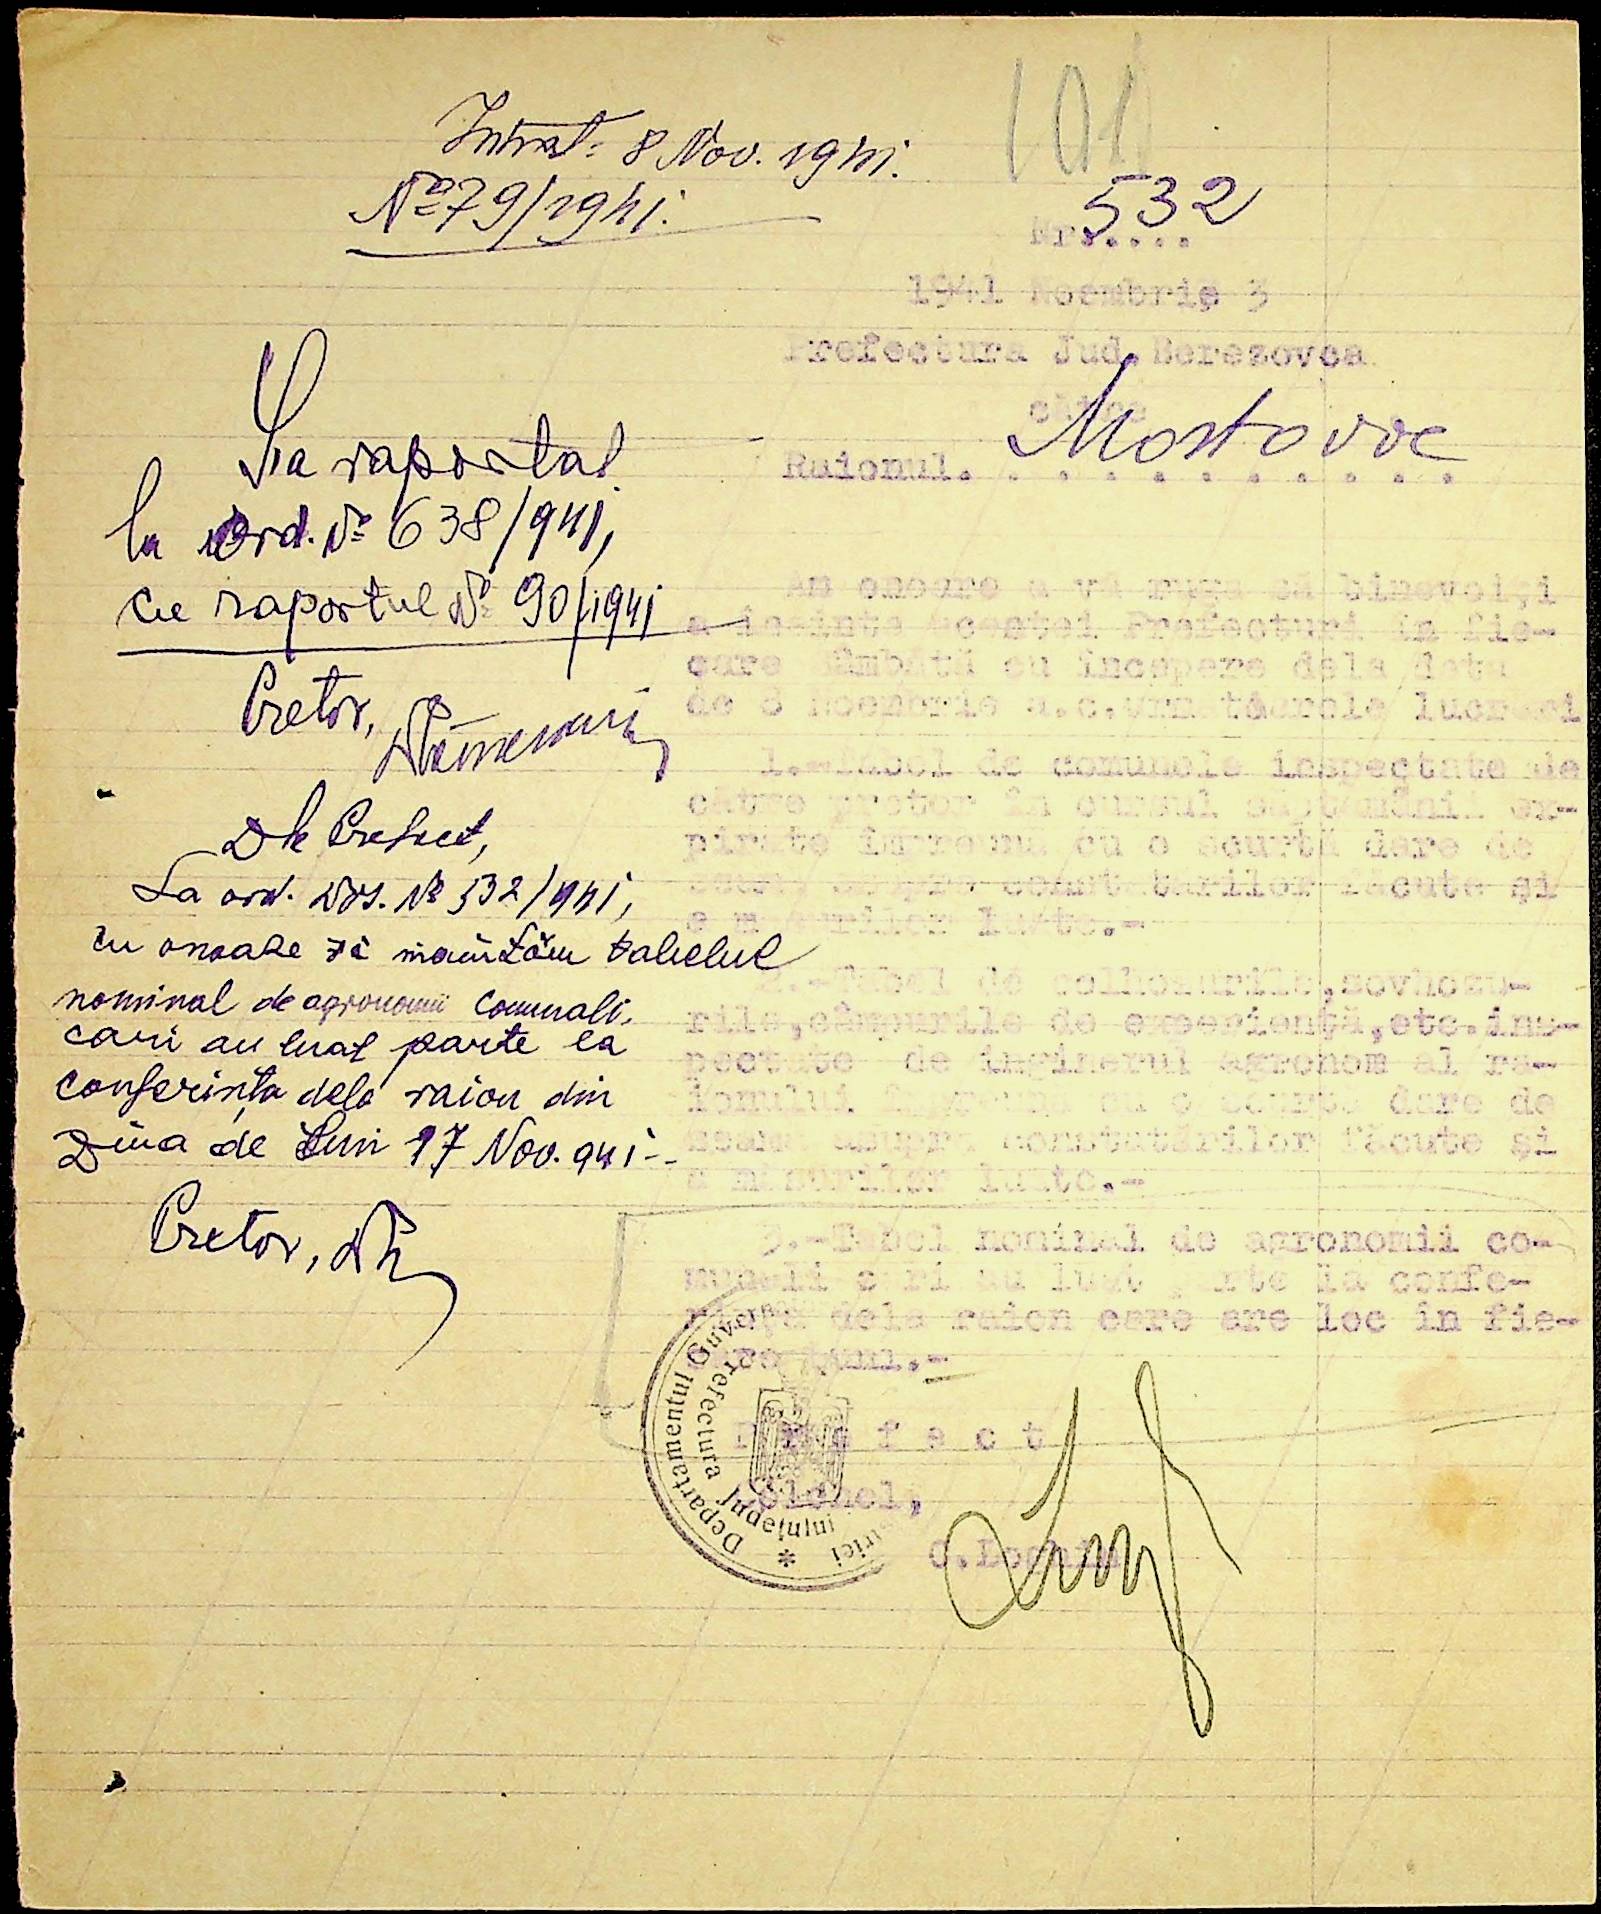 101
Intrat: 8 Nov. 1941.
№ 79/1941.
Nr. 532
1941 Noembrie 3
Prefectura Jud. Berezovca
către
Raionul. Mostovoe
Am onoare a vă ruga să binevoiți
a înainta acestei Prefecturi în fie-
care Sâmbătă cu începere dela data
de 8 Noembrie a.c. următoarele lucrări
1.-Tabel de comunele inspectate de
către pretor în cursul săptămânii ex-
pirate împreună cu o scurtă dare de
seamă asupra constatărilor făcute și
a măsurilor luate.-
2.-Tabel de colhozurile, sovhozu-
rile, câmpurile de experiență, etc. ins-
pectate de inginerul agronom al ra-
ionului împreună cu o scurtă dare de
seamă asupra constatărilor făcute și
a măsurilor luate.-
3.-Tabel nominal de agronomii co-
munali cari au luat parte la confe-
rința dela raion care are loc în fie-
care Luni.-
P r e f e c t
Colonel,
C. Loghin
Departamentul Guver
Prefectura Județului
S'a raportat
la Ord. № 638/941,
cu raportul № 90/1941
Pretor,
Dle Prefect,
La ord. Dvs. № 532/941,
cu onoare vă înaintăm tabelul
nominal de agronomii comunali,
cari au luat parte la
conferința dela raion din
Ziua de Luni 17 Nov. 941.-
Pretor,